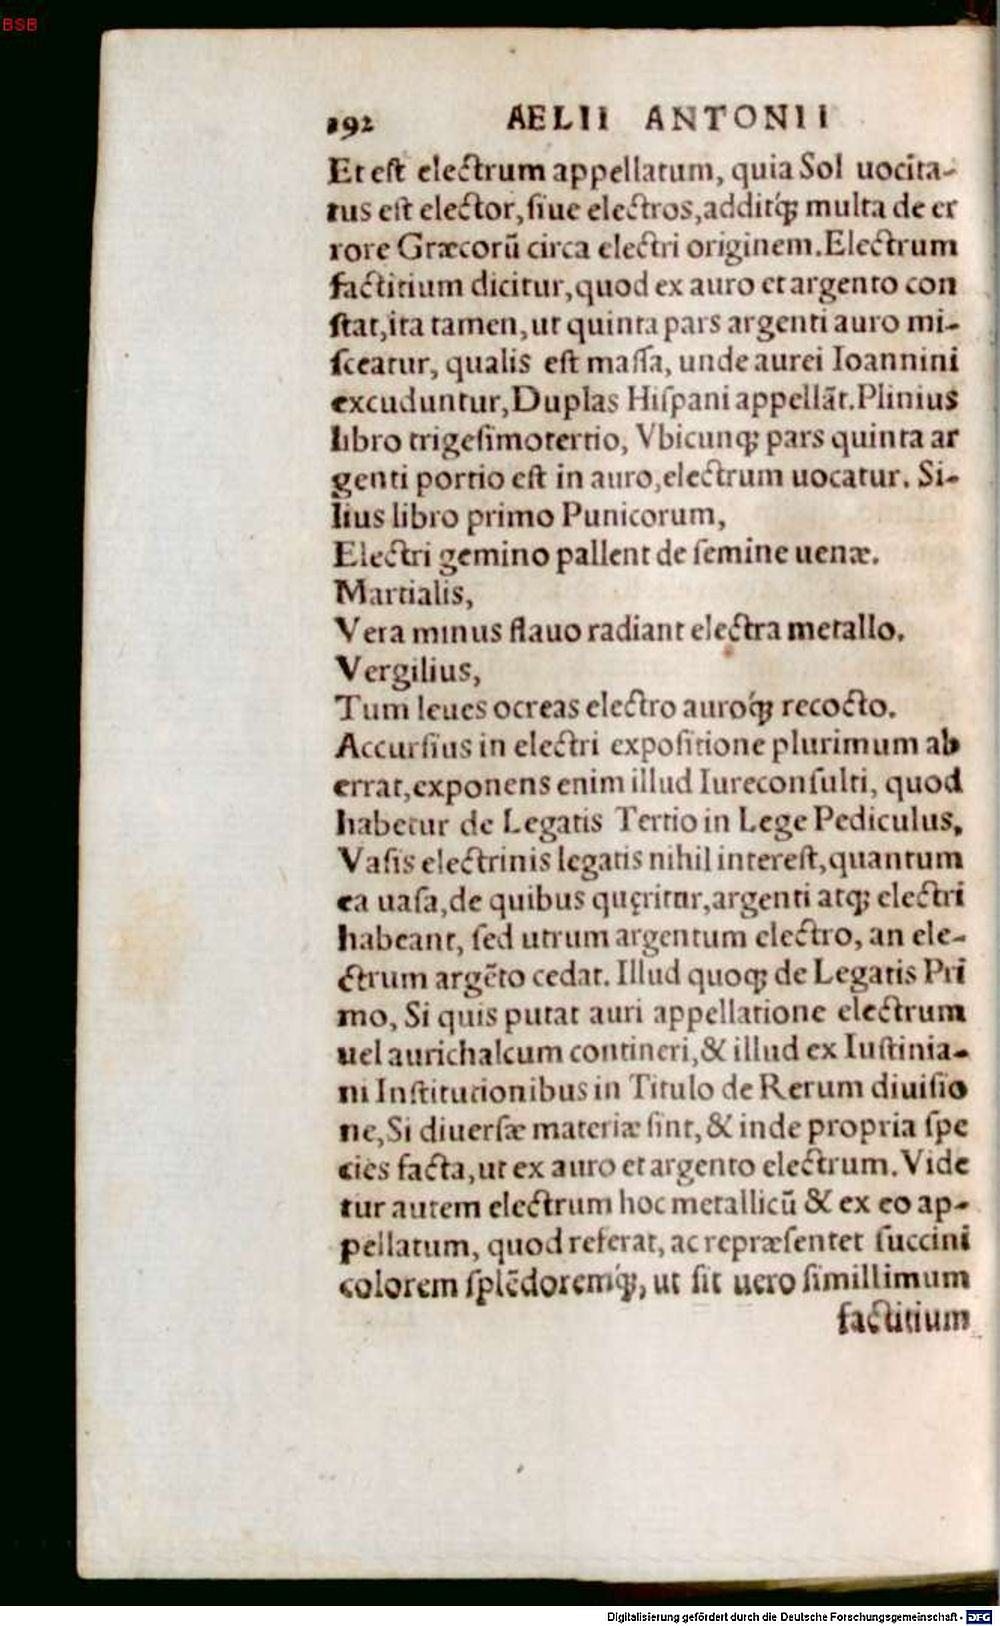 BSB
192 AELII ANTONII
Et est electrum appellatum, quia Sol uocita-
tus est elector, siue electros, additq́; multa de er
rore Græcorũ circa electri originem. Electrum
factitium dicitur, quod ex auro et argento con
stat, ita tamen, ut quinta pars argenti auro mi-
sceatur, qualis est massa, unde aurei Ioannini
excuduntur, Duplas Hispani appellãt. Plinius
libro trigesimotertio, Vbicunq; pars quinta ar
genti portio est in auro, electrum uocatur. Si-
lius libro primo Punicorum,
Electri gemino pallent de semine uenæ.
Martialis,
Vera minus flauo radiant electra metallo.
Vergilius,
Tum leues ocreas electro auroq́; recocto.
Accursius in electri expositione plurimum ab
errat, exponens enim illud Iureconsulti, quod
habetur de Legatis Tertio in Lege Pediculus,
Vasis electrinis legatis nihil interest, quantum
ea uasa, de quibus quęritur, argenti atq; electri
habeant, sed utrum argentum electro, an ele-
ctrum argẽto cedat. Illud quoq; de Legatis Pri
mo, Si quis putat auri appellatione electrum
uel aurichalcum contineri, & illud ex Iustinia-
ni Institutionibus in Titulo de Rerum diuisio
ne, Si diuersæ materiæ sint, & inde propria spe
cies facta, ut ex auro et argento electrum. Vide
tur autem electrum hoc metallicũ & ex eo ap-
pellatum, quod referat, ac repræsentet succini
colorem splẽdoremq́;, ut sit uero simillimum
factitium
Digitalisierung gefördert durch die Deutsche Forschungsgemeinschaft - DFG